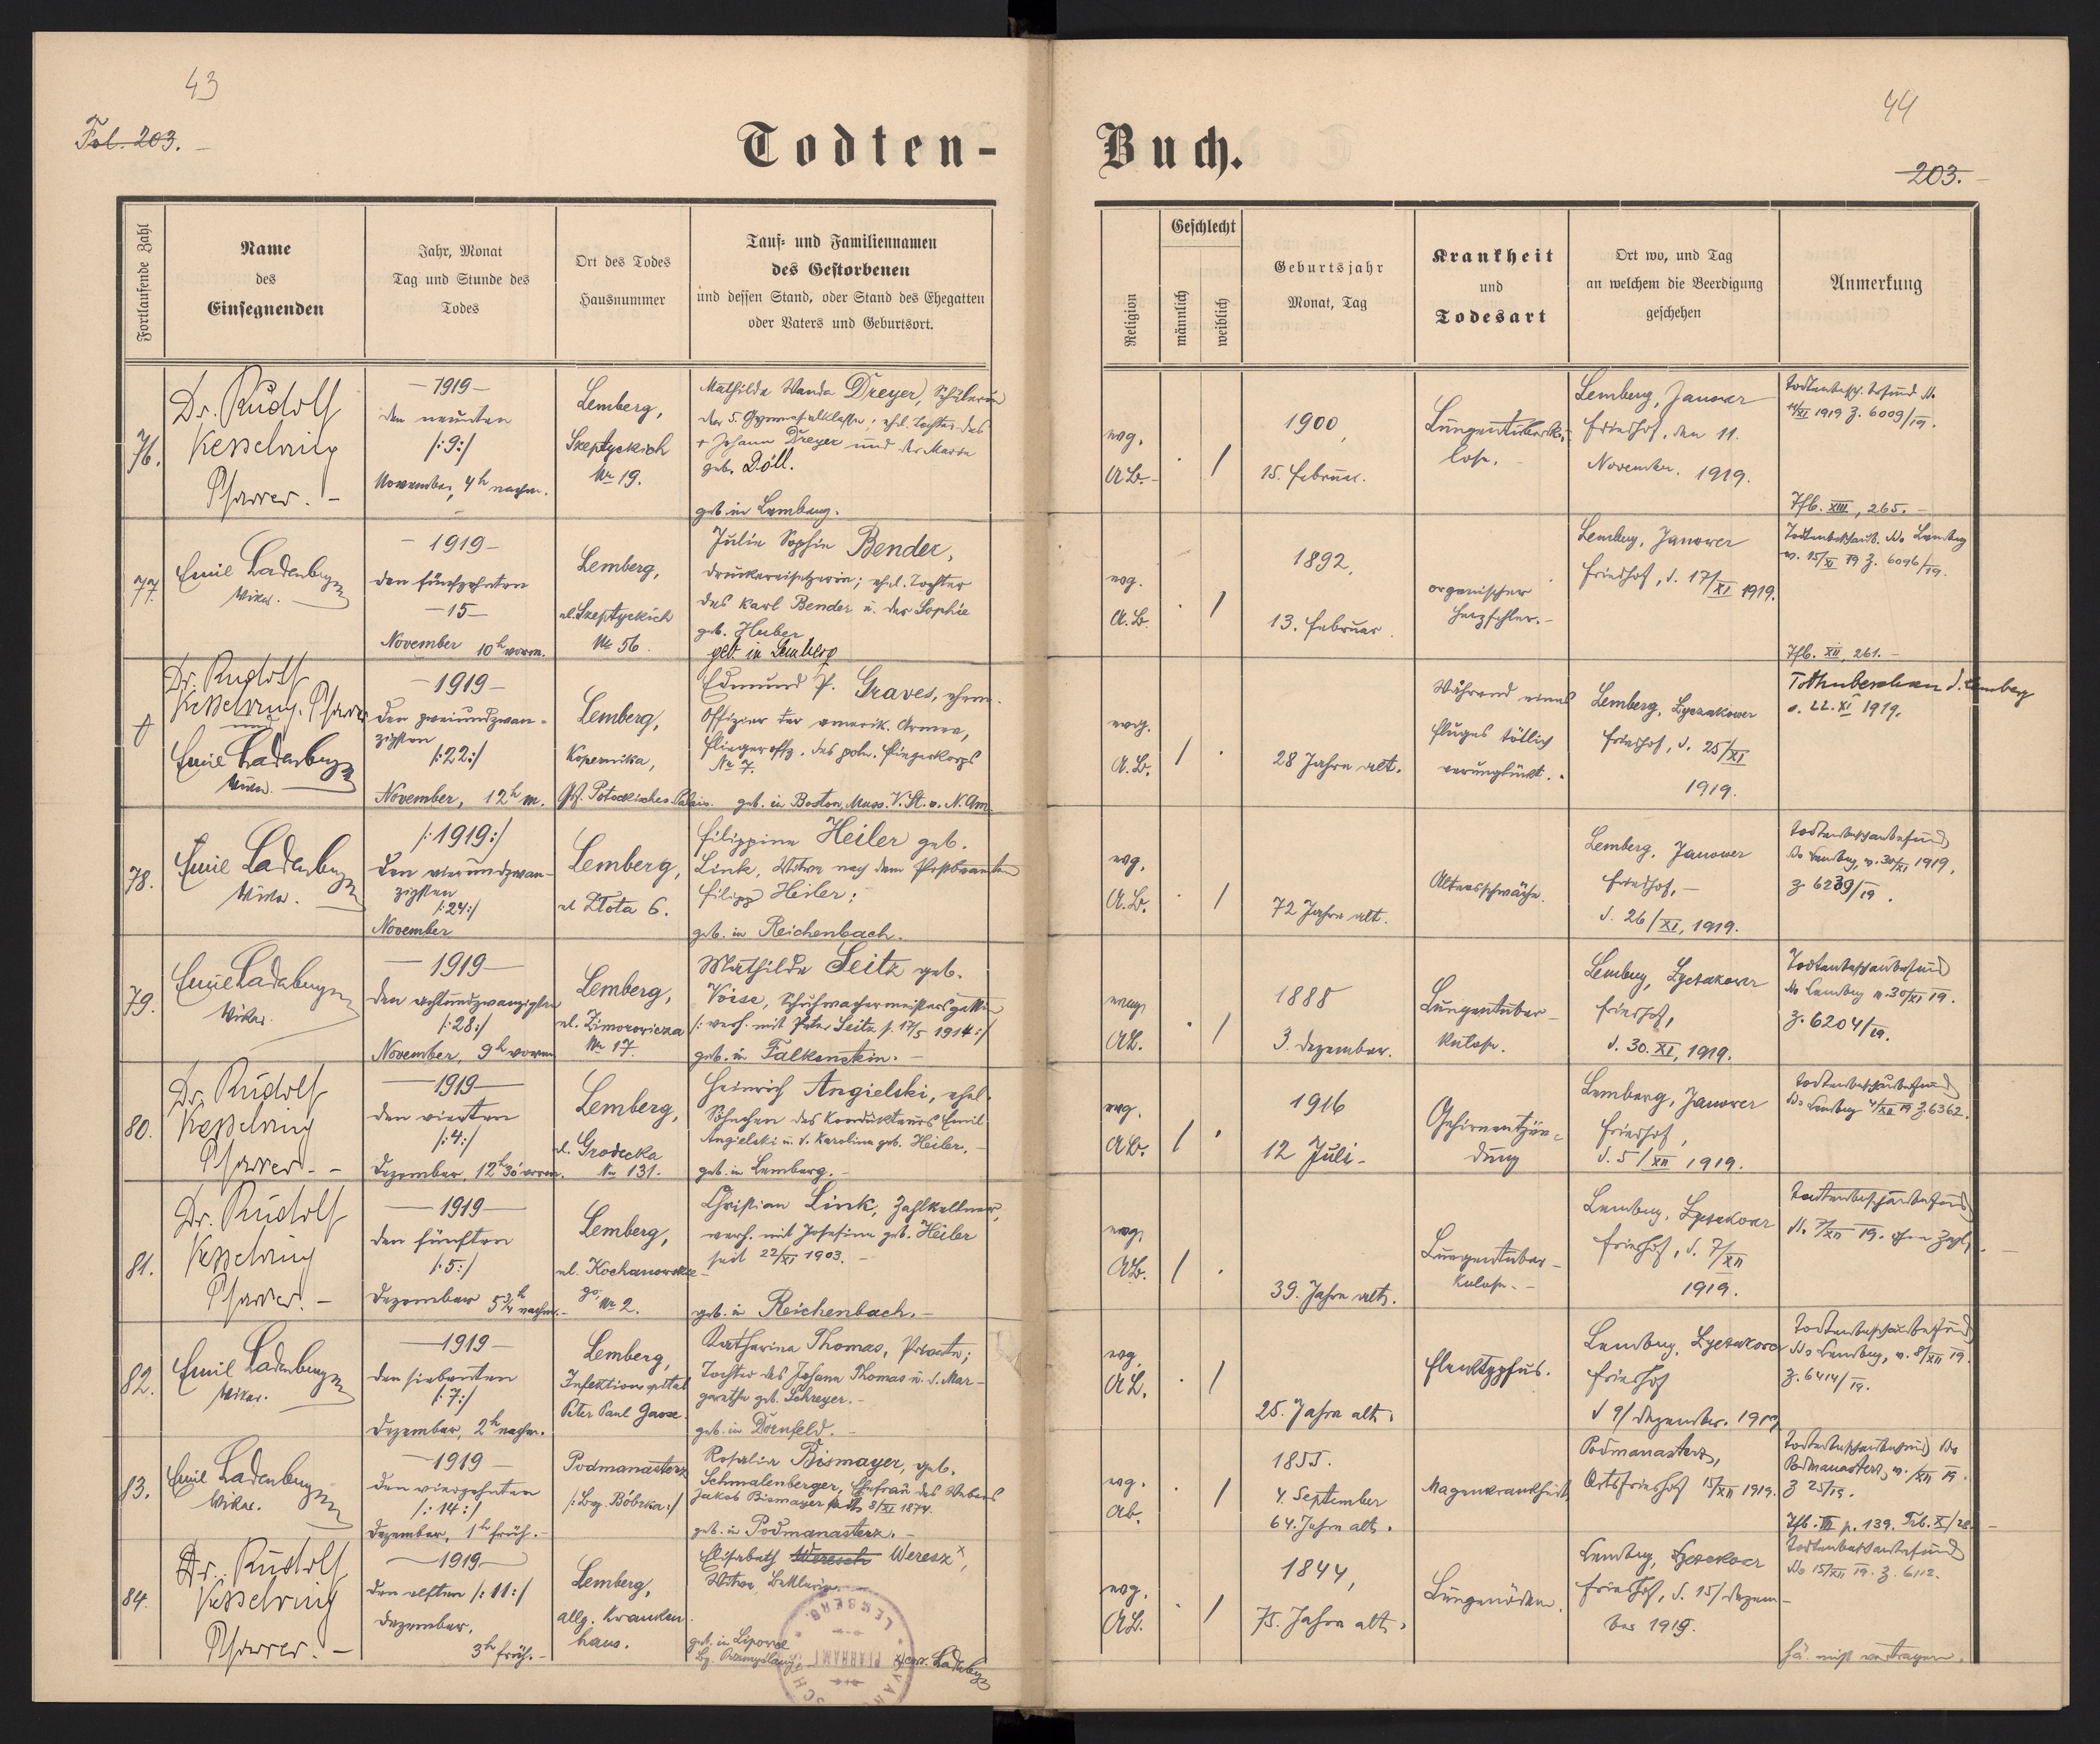 43
Fol. 203.
Todten-
Fortlaufende Zahl
Name
des
Einsegnenden
Jahr, Monat
Tag und Stunde des
Todes
Ort des Todes
Hausnummer
Tauf- und Familiennamen
des Gestorbenen
und dessen Stand, oder Stand des Ehegatten
oder Vaters und Geburtsort.
76.
Dr. Rudolf
Kesselring
Pfarrer. -
-1919-
den neunten
/:9:/
November, 4h nachm.
Lemberg,
Szeptyckich
Nr 19.
Mathilde Wanda Dreyer, Schülerin
der 5. Gymnasialklasse; ehel. Tochter des
+ Johann Dreyer und der Maria
geb. Döll.
geb. in Lemberg.
77.
Emil Ladenberger
Vikar.
-1919-
den fünfzehnten
-15-
November 10h vorm.
Lemberg,
ul. Szeptyckich
Nr 56.
Julie Sophie Bender,
Druckereisetzerin; ehel. Tochter
des Karl Bender u. der Sophie
geb. Huber
geb. in Lemberg
Dr. Rudolf
Kesselring, Pfarrer
und
Emil Ladenberger
Vikar.
-1919-
den zweiundzwan-
zigsten
/:22:/
November, 12h m.
Lemberg,
Kopernika,
Nr 7.
Gf. Potockisches Palais.
Edmund P. Graves, ehem.
Offizier der amerik. Armee,
Fliegeroffz. des poln. Fliegerkorps
geb. in Boston, Mass. V. St. v. N. Am.
78.
Emil Ladenberger
Vikar.
/:1919:/
den vierundzwan-
zigsten
/:24:/
November
Lemberg,
ul Złota 6.
Filippine Heiler geb.
Link, Witwe nach dem Postbeamten
Filipp Heiler;
geb. in Reichenbach.
79.
Emil Ladenberger
Vikar.
-1919-
den achtundzwanzigsten
/:28:/
November, 9h vorm
Lemberg,
ul. Zimorowicza
Nr 17.
Mathilde Seitz geb.
Voise, Schuhmachermeistersgattin
/: verh. mit Peter Seitz s. 17/5 1914:/
geb. in Falkenstein. -
80.
Dr. Rudolf
Kesselring
Pfarrer. -
-1919-
den vierten
/:4:/
Dezember, 12h 30' vorm.
Lemberg,
ul. Grodecka
Nr 131.
Heinrich Angielski, ehel.
Söhnchen des Kondukteurs Emil
Angielski u. d. Karolina geb. Heiler. -
geb. in Lemberg. -
81.
Dr. Rudolf
Kesselring
Pfarrer. -
-1919-
den fünften
/:5:/
Dezember 5 3/4h nachm. -
Lemberg,
ul. Kochanowskie-
go Nr 2.
Christian Link, Zahlkellner,
verh. mit Josefine geb. Heiler
seit 22/XI 1903. -
geb. in Reichenbach. -
82.
Emil Ladenberger
Vikar.
-1919-
den siebenten
/:7:/
Dezember, 2h nachm.
Lemberg,
Infektionsspital
Peter Paul Gasse.
Katharina Thomas, Private;
Tochter des Johann Thomas u. d. Mar-
garethe geb. Schreyer. -
geb. in Dornfeld. -
83.
Emil Ladenberger
Vikar.
-1919-
den vierzehnten
/:14:/
Dezember, 1h früh. -
Podmanasterz
/:Bz. Bóbrka:/
Rosalia Bismayer, geb.
Schmalenberger, Ehefrau des Webers
Jakob Bismayer seit 8/XI 1874.
geb. in Podmanasterz. -
84.
Dr. Rudolf
Kesselring
Pfarrer. -
-1919-
den elften /:11:/
Dezember,
3h früh. -
Lemberg,
allg. Kranken
haus.
Elisabeth Weresch Weresz x,
Witwe, Bettlerin
geb. in Lipowce
Bz. Przemyślany
x) corr. Ladenberger
LEMBERG
PFARRAMT
44
Buch.
203.
Religion
Geschlecht
männlich
weiblich
Geburtsjahr
Monat, Tag
Krankheit
und
Todesart
Ort wo, und Tag
an welchem die Beerdigung
geschehen
Anmerkung
evg.
A.B.
1900,
15. Februar.
Lungentuberku-
lose.
Lemberg, Janower
Friedhof, den 11.
November. 1919.
1919 Z. 6009/19.
Tfb. XIII, 265. -
evg.
A.B.
1892,
13. Februar.
organischer
Herzfehler. -
Lemberg, Janower
Friedhof, d. 17/XI 1919.
v. 15/XI 19 Z. 6096/19.
Tfb. XII, 261. -
evg.
A.B.
28 Jahre alt.
Während eines
Fluges tötlich
verunglückt.
Lemberg, Lyczakower
Friedhof, d. 25/XI
1919.
v. 22. XI 1919.
evg.
A.B.
72 Jahre alt.
Altersschwäche.
Lemberg, Janower
Friedhof, -
d. 26/XI, 1919.
Todtenbeschaubefund
do Lemberg, v. 30/XI 1919,
Z. 6239/19.
evg.
AB.
1888
3. Dezember.
Lungentuber-
kulose.
Lemberg, Lyczakower
Friedhof,
d. 30. XI, 1919.
Todtenbeschaubefund
do Lemberg v. 30/XI 19.
Z. 6204/19.
evg.
AB.
1916
12 Juli-
Gehirnentzün-
dung
Lemberg, Janower
Friedhof,
d. 5/XII 1919.
Todtenbeschaubefund
do Lemberg 4/XII 19 Z. 6362.
evg.
AB.
39. Jahre alt.
Lungentuber-
kulose. -
Lemberg, Lyczakower
Friedhof, d. 7/XII
1919.
Todtenbeschaubefund
d. 7/XII 19. ohne Zahl. -
evg.
AB.
25. Jahre alt.
Flecktyphus.
Lemberg, Lyczakower
Friedhof
d 9/ Dezember. 1919
Todtenbeschaubefund
do Lemberg, v. 8/XII 19.
Z. 6414/19.
evg.
AB.
1855.
4. September
64. Jahre alt.
Magenkrankheit
Podmanasterz,
Ortsfriedhof 15/XII 1919.
Todtenbeschaubefund do
Podmanasterz, v. /XII 19.
Z 25/19.
evg.
AB.
1844,
75. Jahre alt.
Lungenödem.
Lemberg, Lyczakower
Friedhof, d. 15/ Dezem-
ber 1919.
Todtenbeschaubefund
do 15/XII 19. Z. 6112.